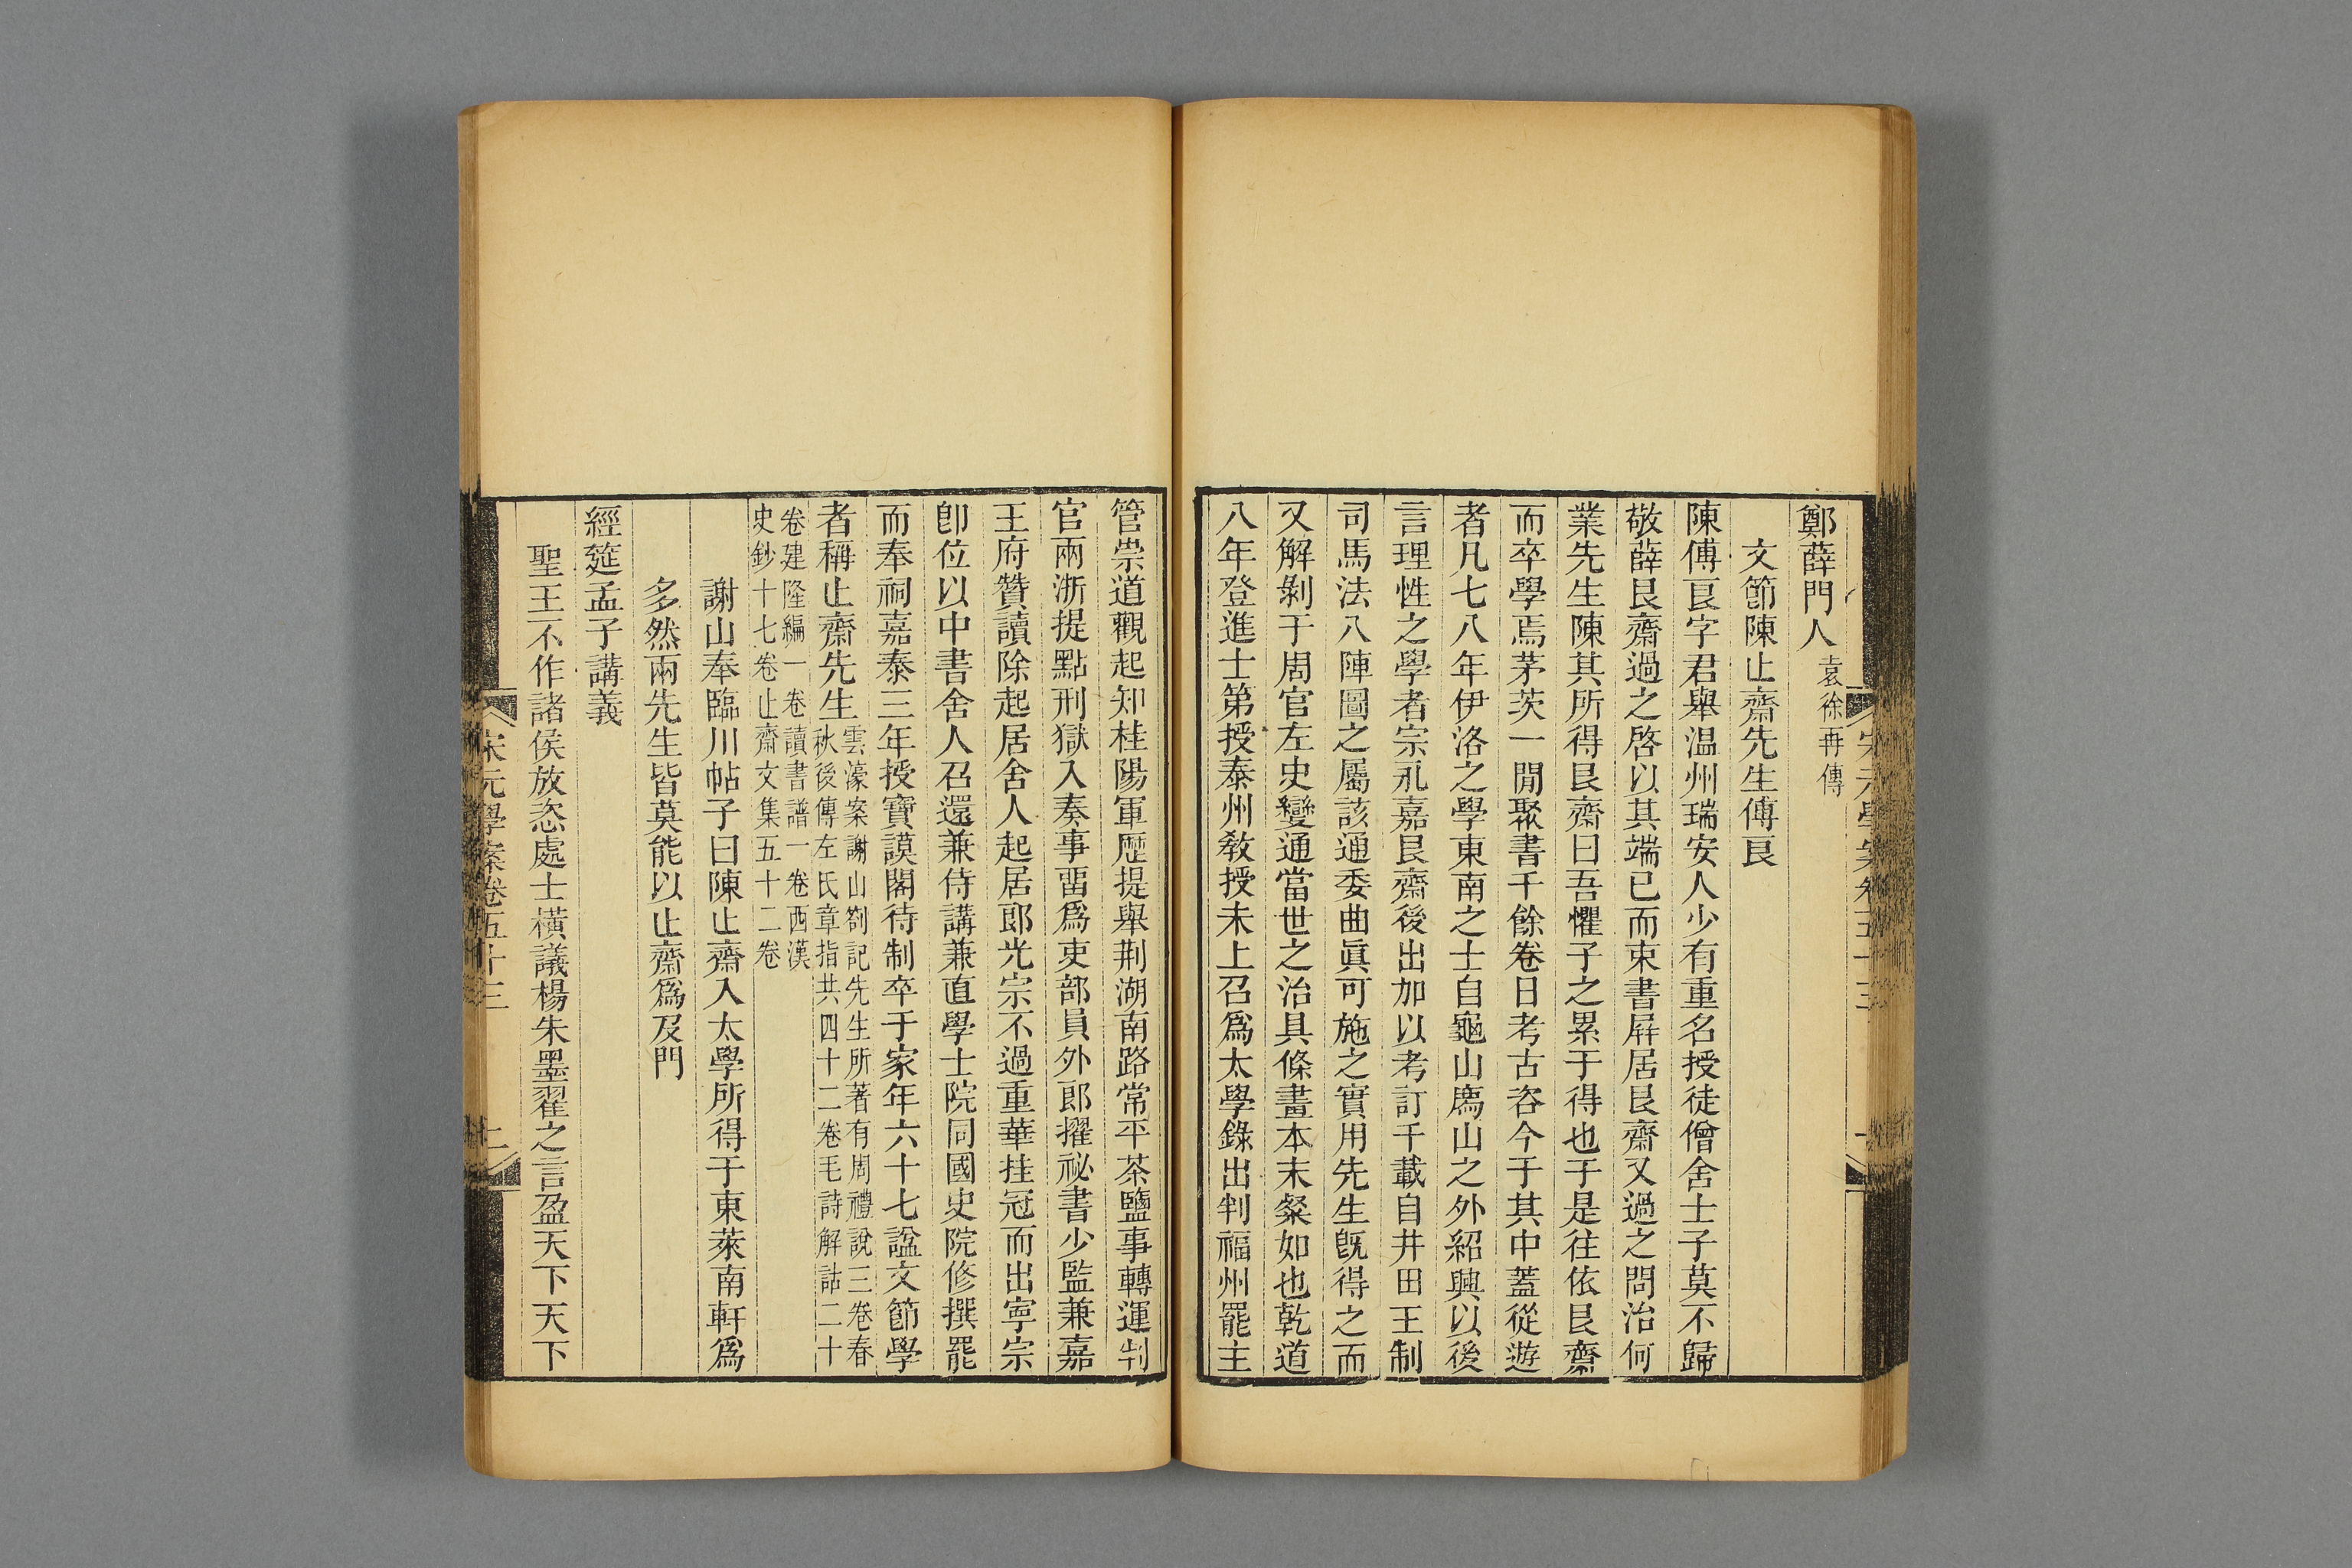 鄭薛門人袁徐再傳
文節陳止齋先生傅良
陳傅良字君舉温州瑞安人少有重名授徒僧舍士子莫不歸
敬薛艮齋過之啓以其端已而束書屛居艮齋又過之問治何
業先生陳其所得艮齋曰吾懼子之累于得也于是往依艮齋
而卒學焉茅茨一閒聚書千餘卷日考古咨今于其中蓋從遊
者凡七八年伊洛之學東南之士自龜山廌山之外紹興以後
言理性之學者宗永嘉艮齋後出加以考訂千載自井田王制
司馬法八陣圖之屬該通委曲眞可施之實用先生旣得之而
又解剝于周官左史變通當世之治具條畫本末粲如也乾道
八年登進士第授泰州敎授未上召爲太學錄出判福州罷主
管崇道觀起知桂陽軍歷提舉荆湖南路常平茶鹽事轉運判
官兩浙提點刑獄入奏事畱爲吏部員外郎擢祕書少監兼嘉
王府贊讀除起居舍人起居郎光宗不過重華挂冠而出寧宗
卽位以中書舍人召還兼侍講兼直學士院同國史院修撰罷
而奉祠嘉泰三年授寶謨閣待制卒于家年六十七諡文節學
者稱止齋先生雲濠案謝山劄記先生所著有周禮說三卷春
秋後傳左氏章指共四十二卷毛詩解詁二十
卷建隆編一卷讀書譜一卷西漢
史鈔十七卷止齋文集五十二卷
謝山奉臨川帖子曰陳止齋入太學所得于東萊南軒爲
多然兩先生皆莫能以止齋爲及門
經筵孟子講義
聖王不作諸侯放恣處士橫議楊朱墨翟之言盈天下天下
宋元學案卷五十三